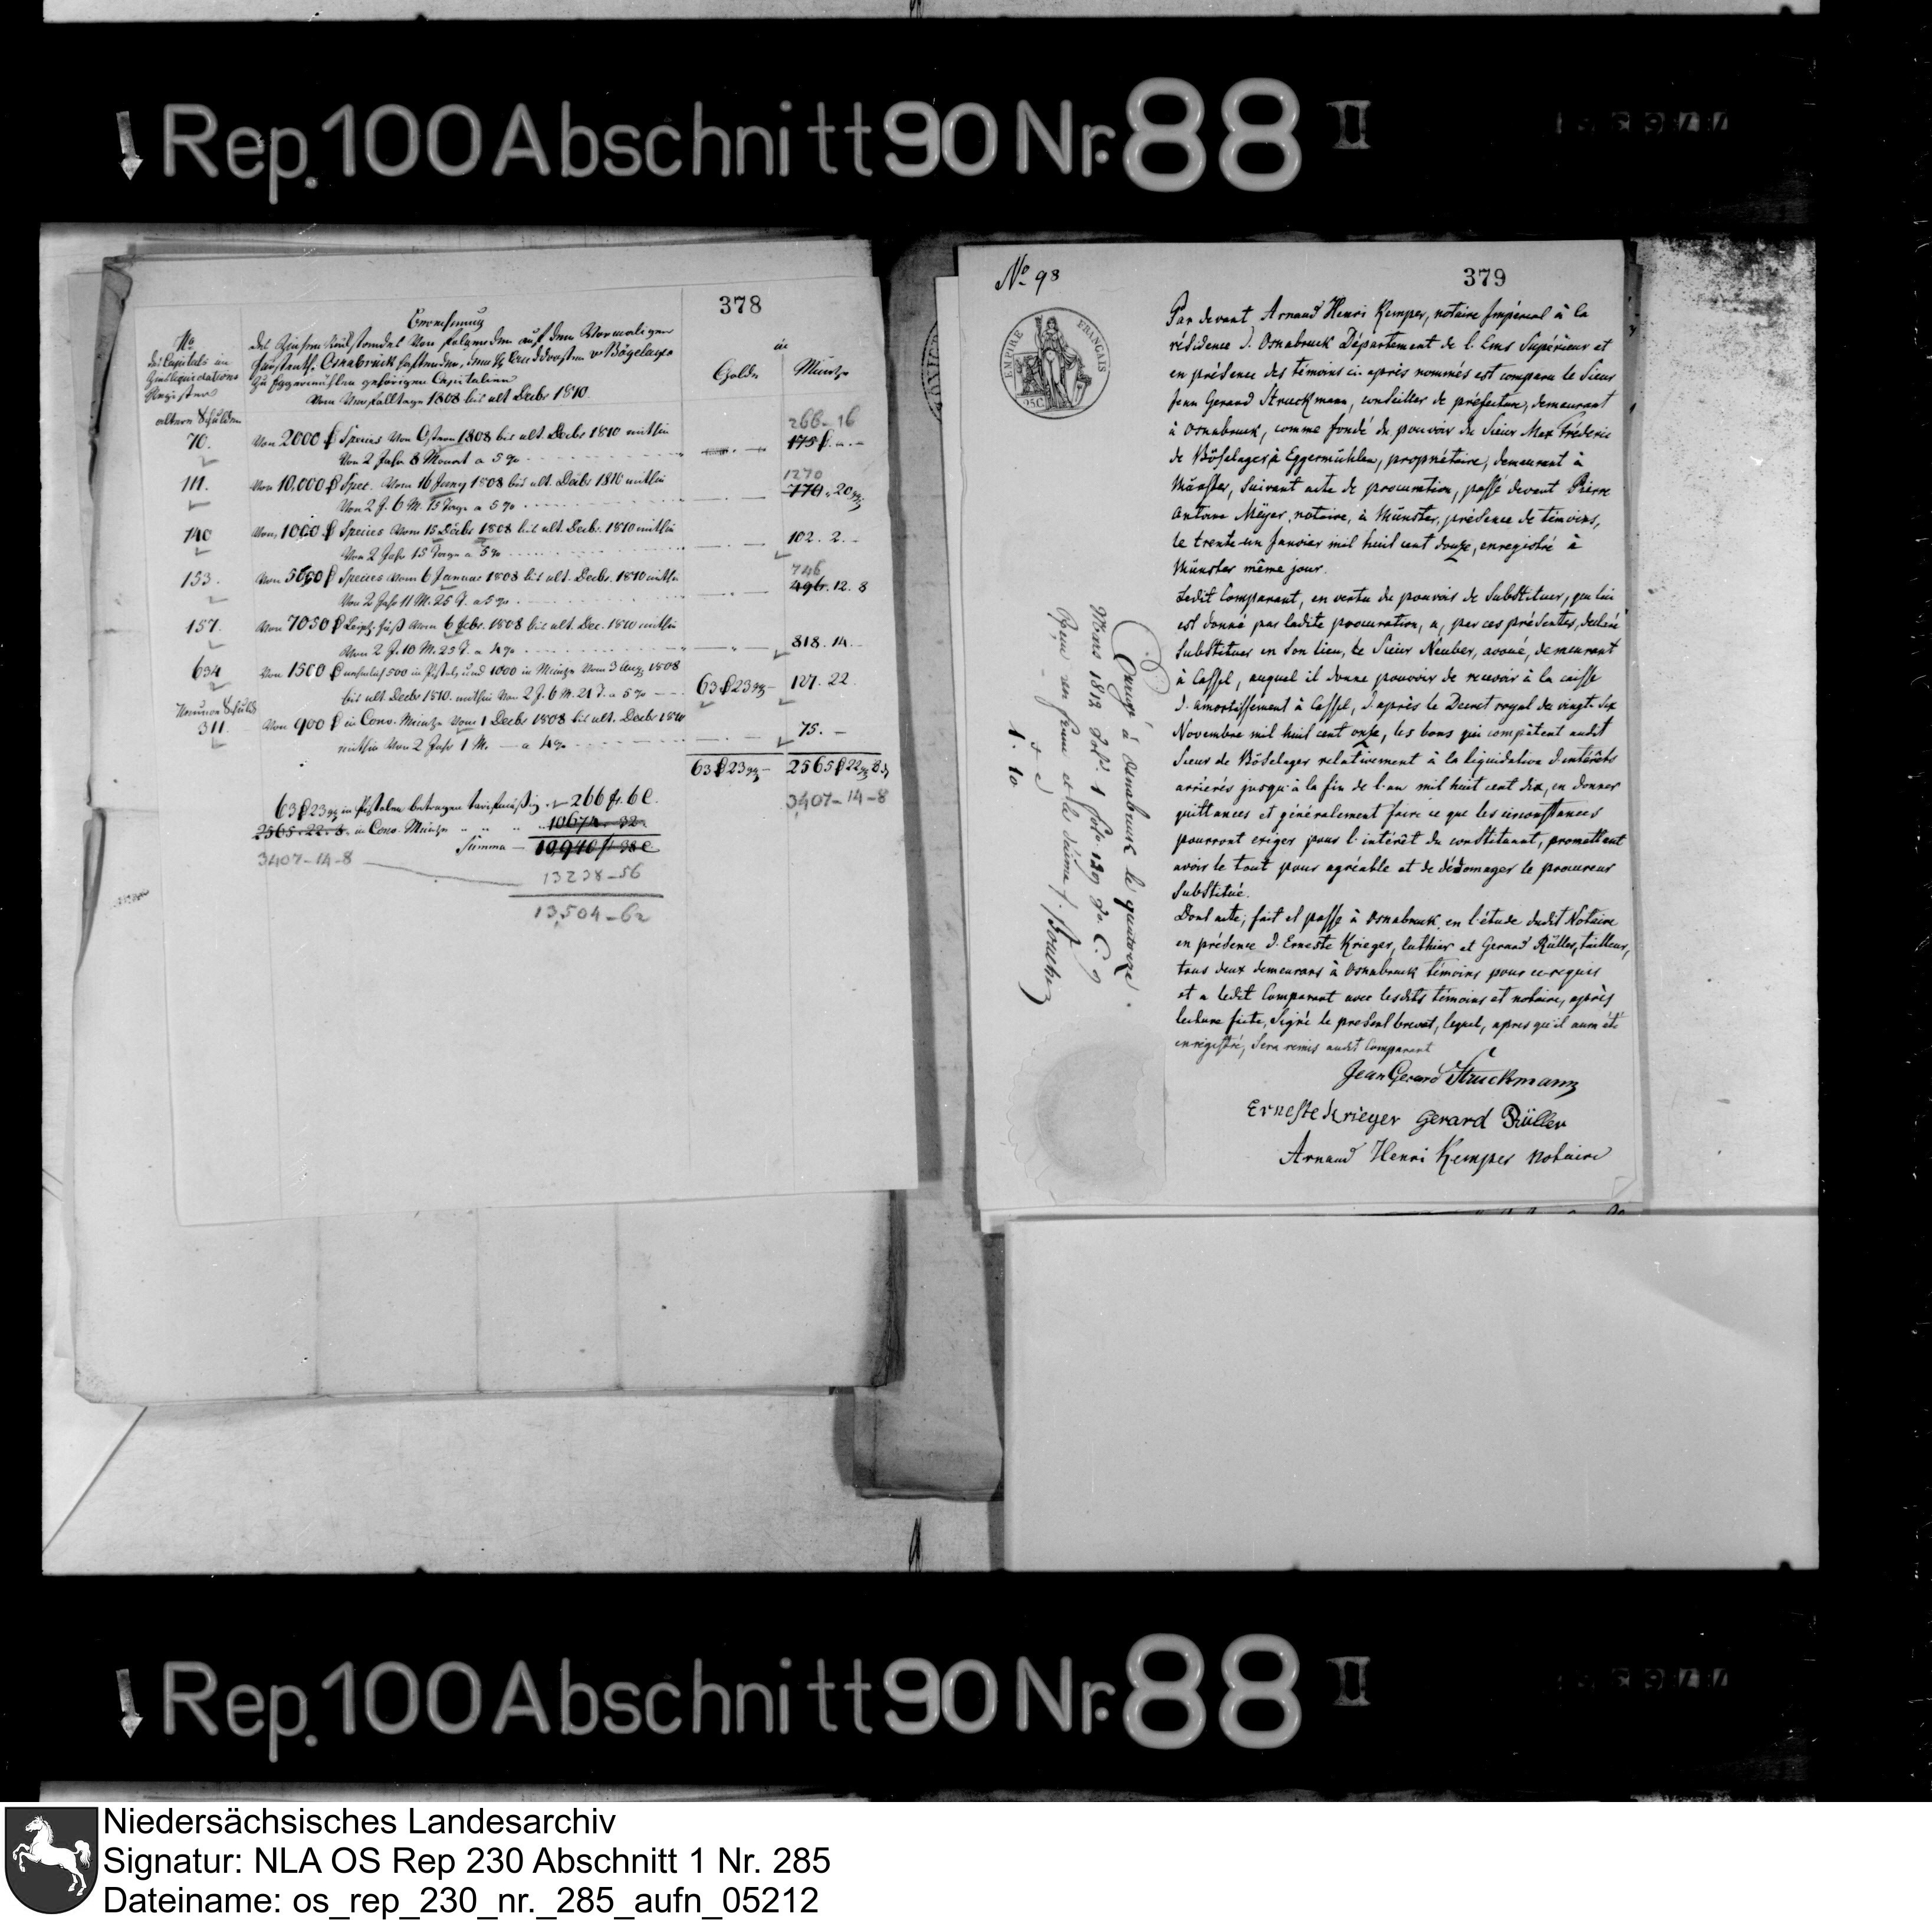 Rep. 100 Abschnitt 90 Nr. 88 II
378
Berechnung
No
des Capitals im
Landes Osnabrück haftenden, dem H. Landdrosten v Böselager
zu Eggermühlen gehörigen Capitalien
vom Verfalltage 1808 bis ult Decbr 1810.
in
Golde
Münze
ältere Schulden
70.
Von 2000 Species von Ostern 1808 bis ult. Decbr 1810 mithin
von 2 Jahr 8 Monat a 5 %
266-16
175
111.
Von 10,000 Spec. vom 16 Juny 1808 bis ult. Decbr 1810 mithin
von 2 J. 6 M. 15 Tage a 5 %
1270
770. 20
140
Von 1000 Species vom 15 Decbr 1808 bis ult. Decbr. 1810 mithin
von 2 Jahr 15 Tage a 5 %
102. 2. -
153.
Von 5000 Species vom 6 Januar 1808 bis ult. Decbr. 1810 mithin
von 2 Jahr 11 M. 25 T. a 5 %
746
496. 12. 8
157.
Von 7050 vom 6 Febr. 1808 bis ult. Dec. 1810 mithin
von 2 J. 10 M. 25 T. a 4 %
818. 14.
634
Von 1500 500 in Pistol. und 1000 in Münze vom 3 Aug. 1808
bis ult. Decbr 1810. mithin von 2 J. 6 M. 21 T. a 5 %
63 23
127. 22.
neuere Schulden
311
Von 900 in Conv. Münze vom 1 Decbr 1808 bis ult. Decbr 1810
mithin von 2 Jahr 1 M. a 4 %
75. -
63 23
2565 22 8
3407-14-8
63 23 in Pistolen betragen tarifmäßig 266 fr. 6 C.
2565. 22. 8. in Conv. Münze 10674. 32
Summa
3407-14-8
13238-56
13,504-62
No 98
379
EMPIRE FRANÇAIS
Par devant Arnaud Henri Kemper, notaire Impérial à la
résidence d'Osnabruck Département de l'Ems Supérieur et
en présence des témoins ci-après nommés est comparu le Sieur
Jean Gerard Struckmann, conseiller de préfecture, demeurant
à Osnabruck, comme fondé de pouvoir du Sieur Max Fréderic
de Böselager à Eggermühlen, propriétaire, demeurant à
Münster, suivant acte de procuration, passé devant Pierre
Antoine Meyer, notaire, à Münster, présence de témoins,
le trente-un Janvier mil huit cent douze, enregistré à
Münster même jour.
Ledit Comparant, en vertu du pouvoir de substituer, qui lui
est donné par ladite procuration, a, par ces présentes, declaré
substituer en son lieu, le Sieur Neuber, avoué, demeurant
à Cassel, auquel il donne pouvoir de recevoir à la caisse
d'amortissement à Cassel, d'après le Decret royal du vingt-six
Novembre mil huit cent onze, les bons qui compètent audit
Sieur de Böselager relativement à la liquidation d'intérêts
arriérés jusqu'à la fin de l'an mil huit cent dix, en donner
quittances et généralement faire ce que les circonstances
pourront exiger pour l'intérêt du constituant, promettant
avoir le tout pour agréable et de dédomager le procureur
substitué.
Dont acte; fait et passé à Osnabruck en l'étude dudit Notaire
en présence d'Erneste Krieger, luthier et Gerard Rüller, tailleur,
tous deux demeurans à Osnabruck témoins pour ce requis
et a ledit Comparant avec lesdits témoins et notaire, après
lecture faite, signé le present brevet, lequel, apres qu'il aura été
enregistré, sera remis audit Comparant
Jean Gerard Struckmann
Erneste Krieger Gerard Rüller
Arnaud Henri Kemper notaire
Enregé à Osnabruck le quatorze
Mars 1812 fol. 129
Reçu un franc et dix
1. 10
Rep. 100 Abschnitt 90 Nr. 88 II
Niedersächsisches Landesarchiv
Signatur: NLA OS Rep 230 Abschnitt 1 Nr. 285
Dateiname: os_rep_230_nr._285_aufn_05212